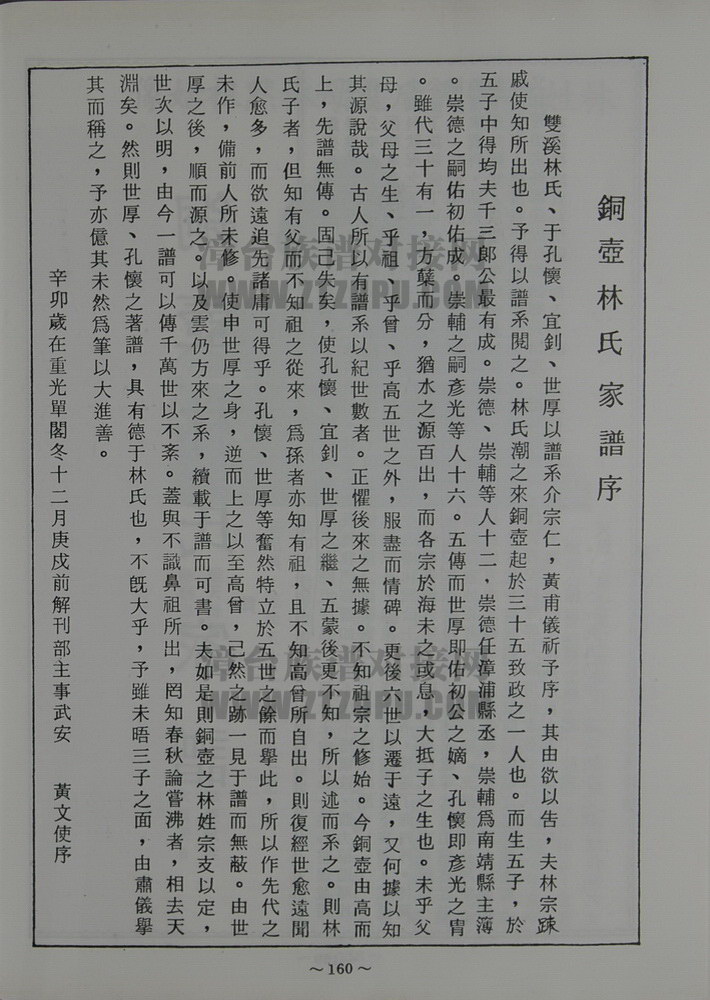 銅壺林氏家譜序
雙溪林氏、于孔懷、宜釗、世厚以譜系介宗仁，黃甫儀祈予序，其由欲以告，夫林宗疎
戚使知所出也。予得以譜系閱之。林氏潮之來銅壺起於三十五致政之一人也。而生五子，於
五子中得均夫千三郎公最有成。崇德、崇輔等人十二，崇德任漳浦縣丞，崇輔爲南靖縣主簿
。崇德之嗣佑初佑成。崇輔之嗣彥光等人十六。五傳而世厚即佑初公之嫡、孔懷即彥光之胄
。雖代三十有一，方蘖而分，猶水之源百出，而各宗於海未之或息，大抵子之生也。未乎父
母，父母之生、乎祖、乎曾、乎高五世之外，服盡而情碑。更後六世以遷于遠，又何據以知
其源說哉。古人所以有譜系以紀世數者。正懼後來之無據。不知祖宗之修始。今銅壺由高而
上，先譜無傳。固己失矣，使孔懷、宜釗、世厚之繼、五蒙後更不知，所以述而系之。則林
氏子者，但知有父而不知祖之從來，爲孫者亦知有祖，且不知高曾所自出。則復經世愈遠聞
人愈多，而欲遠追先諸庸可得乎。孔懷、世厚等奮然特立於五世之餘而擧此，所以作先代之
未作，備前人所未修。使申世厚之身，逆而上之以至高曾，己然之跡一見于譜而無蔽。由世
厚之後，順而源之。以及雲仍方來之系，續載于譜而可書。夫如是則銅壺之林姓宗支以定，
世次以明，由今一譜可以傳千萬世以不紊。蓋與不識鼻祖所出，罔知春秋論嘗沸者，相去天
淵矣。然則世厚、孔懷之著譜，具有德于林氏也，不旣大乎，予雖未晤三子之面，由肅儀擧
其而稱之，予亦億其未然爲筆以大進善。
辛卯歲在重光單閼冬十二月庚戌前解刊部主事武安　黃文使序
～160～
漳台族谱对接网
WWW.ZTZUPU.COM
漳台族谱对接网
WWW.ZTZUPU.COM